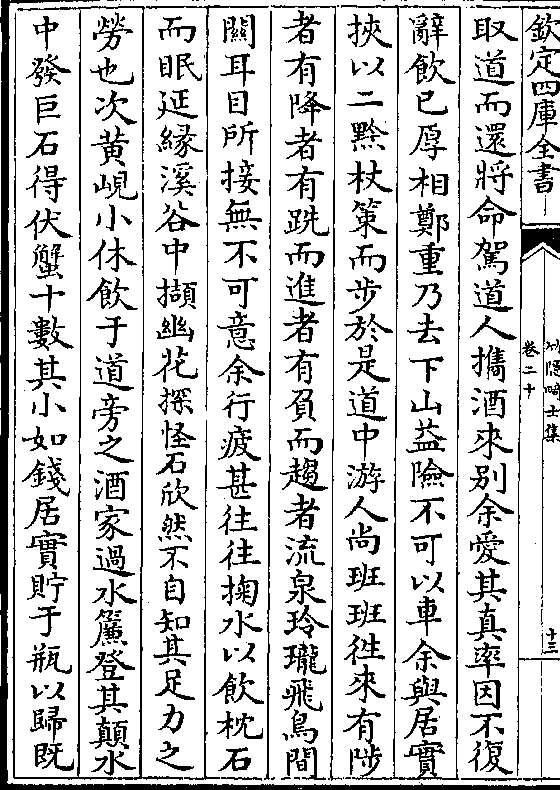 欽定四庫全書
竹隱畸士集
卷二十
十三
取道而還將命駕道人攜酒來别余愛其真率因不復
辭飲已厚相鄭重乃去下山益險不可以車余與居實
挾以二黥杖策而步於是道中游人尚班班徃來有陟
者有降者有跣而進者有負而趨者流泉玲瓏飛鳥間
關耳目所接無不可意余行疲甚往往掬水以飲枕石
而眠延緣溪谷中擷幽花探怪石欣然不自知其足力之
勞也次黄峴小休飲于道旁之酒家過水簾登其顛水
中發巨石得伏蟹十數其小如錢居實貯于瓶以歸既